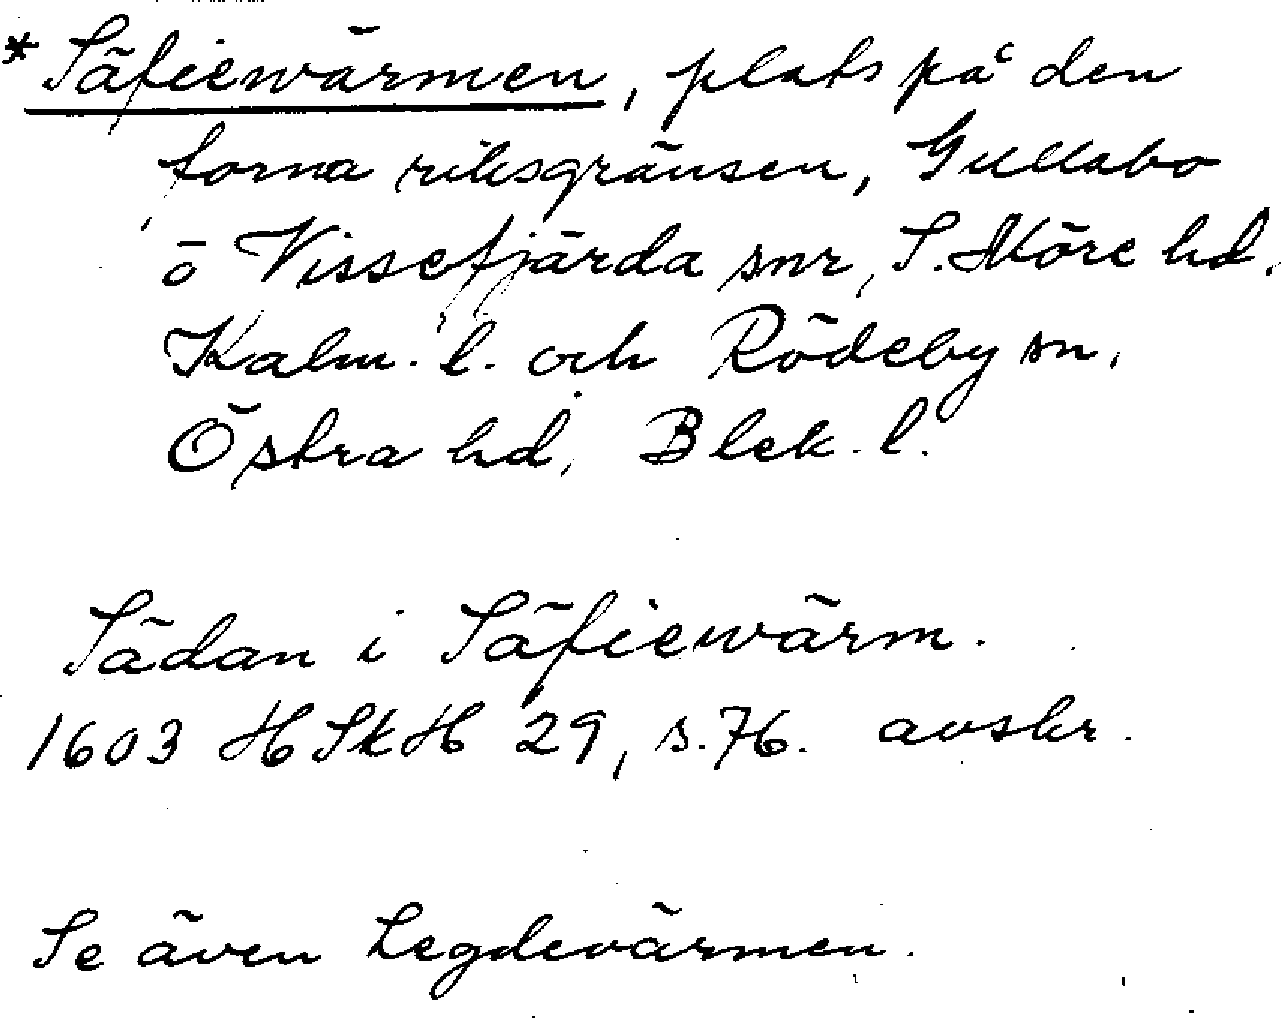 * Säfiewärmen, plats på den
forna riksgränsen, Gullabo
o Vissefjärda snr, S. Möre hd,
Kalm. l. och Rödeby sn,
Östra hd, Blek. l.
Sädan i Säfiewärm.
1603 HSkH 29, s. 76. avskr.
Se även Legdevärmen.